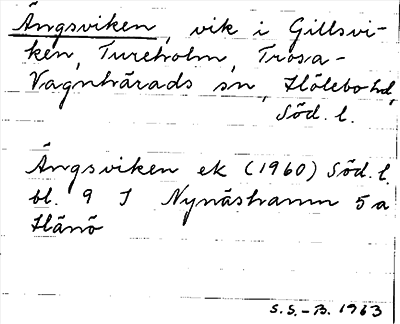 Ängsviken, vik i Gillsvi-
ken, Tureholm, Trosa-
Vagnhärads sn, Hölebo hd,
Söd. l.
Ängsviken ek (1960) Söd. l.
bl. 9 I Nynäshamn 5 a
Hånö
S.S.-B. 1963